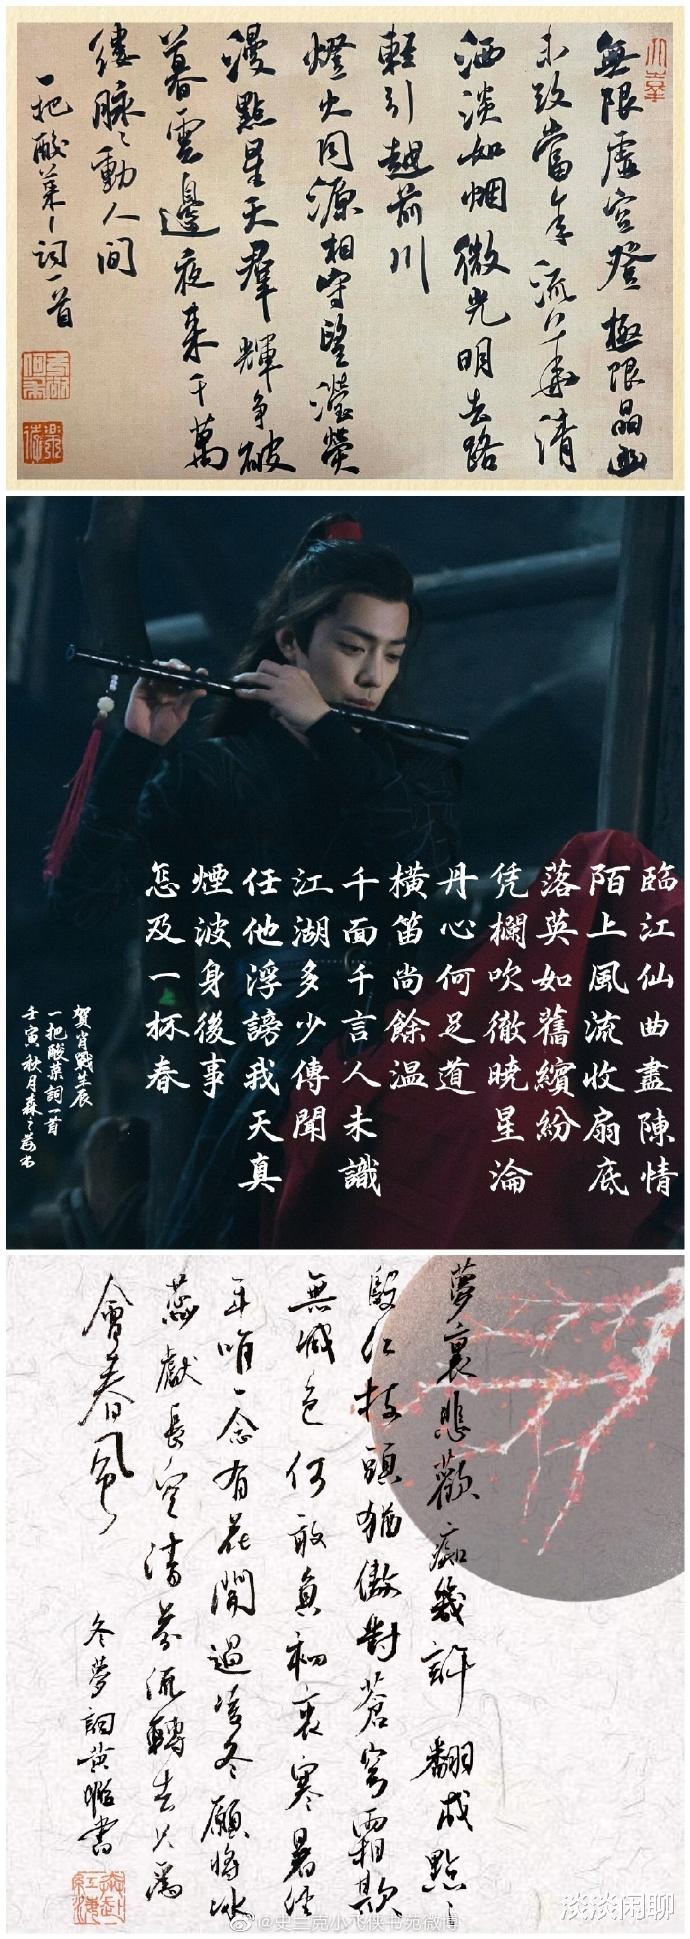 無限虛空登極限晶幽
未致當年流年清
洒淡如烟微光明去路
輕引越前川
燈火同源相守望瀅熒
漫點星天群輝爭破
暮雲邊夜來千萬
縷脈脈動人間
一把酸菜詞一首
臨江仙曲盡陳情
陌上風流收扇底
落英如舊繽紛
凭欄吹徹曉星淪
丹心何足道
橫笛尚餘温
千面千言人未識
江湖多少傳聞
任他浮謗我天真
煙波身後事
怎及一杯春
賀肖戰生辰
一把酸菜詞一首
壬寅秋月森之為書
夢裏悲歡痴幾許翻成點點
殷紅枝頭猶傲對蒼穹霜欺
無減色何敢負初衷寒暑經
年唯一念有花開過凌冬願將冰
蕊獻長空清芬流轉去只為
會春風
冬夢詞黃臨書
@史三克小飞侠书苑微博
淡淡闲聊